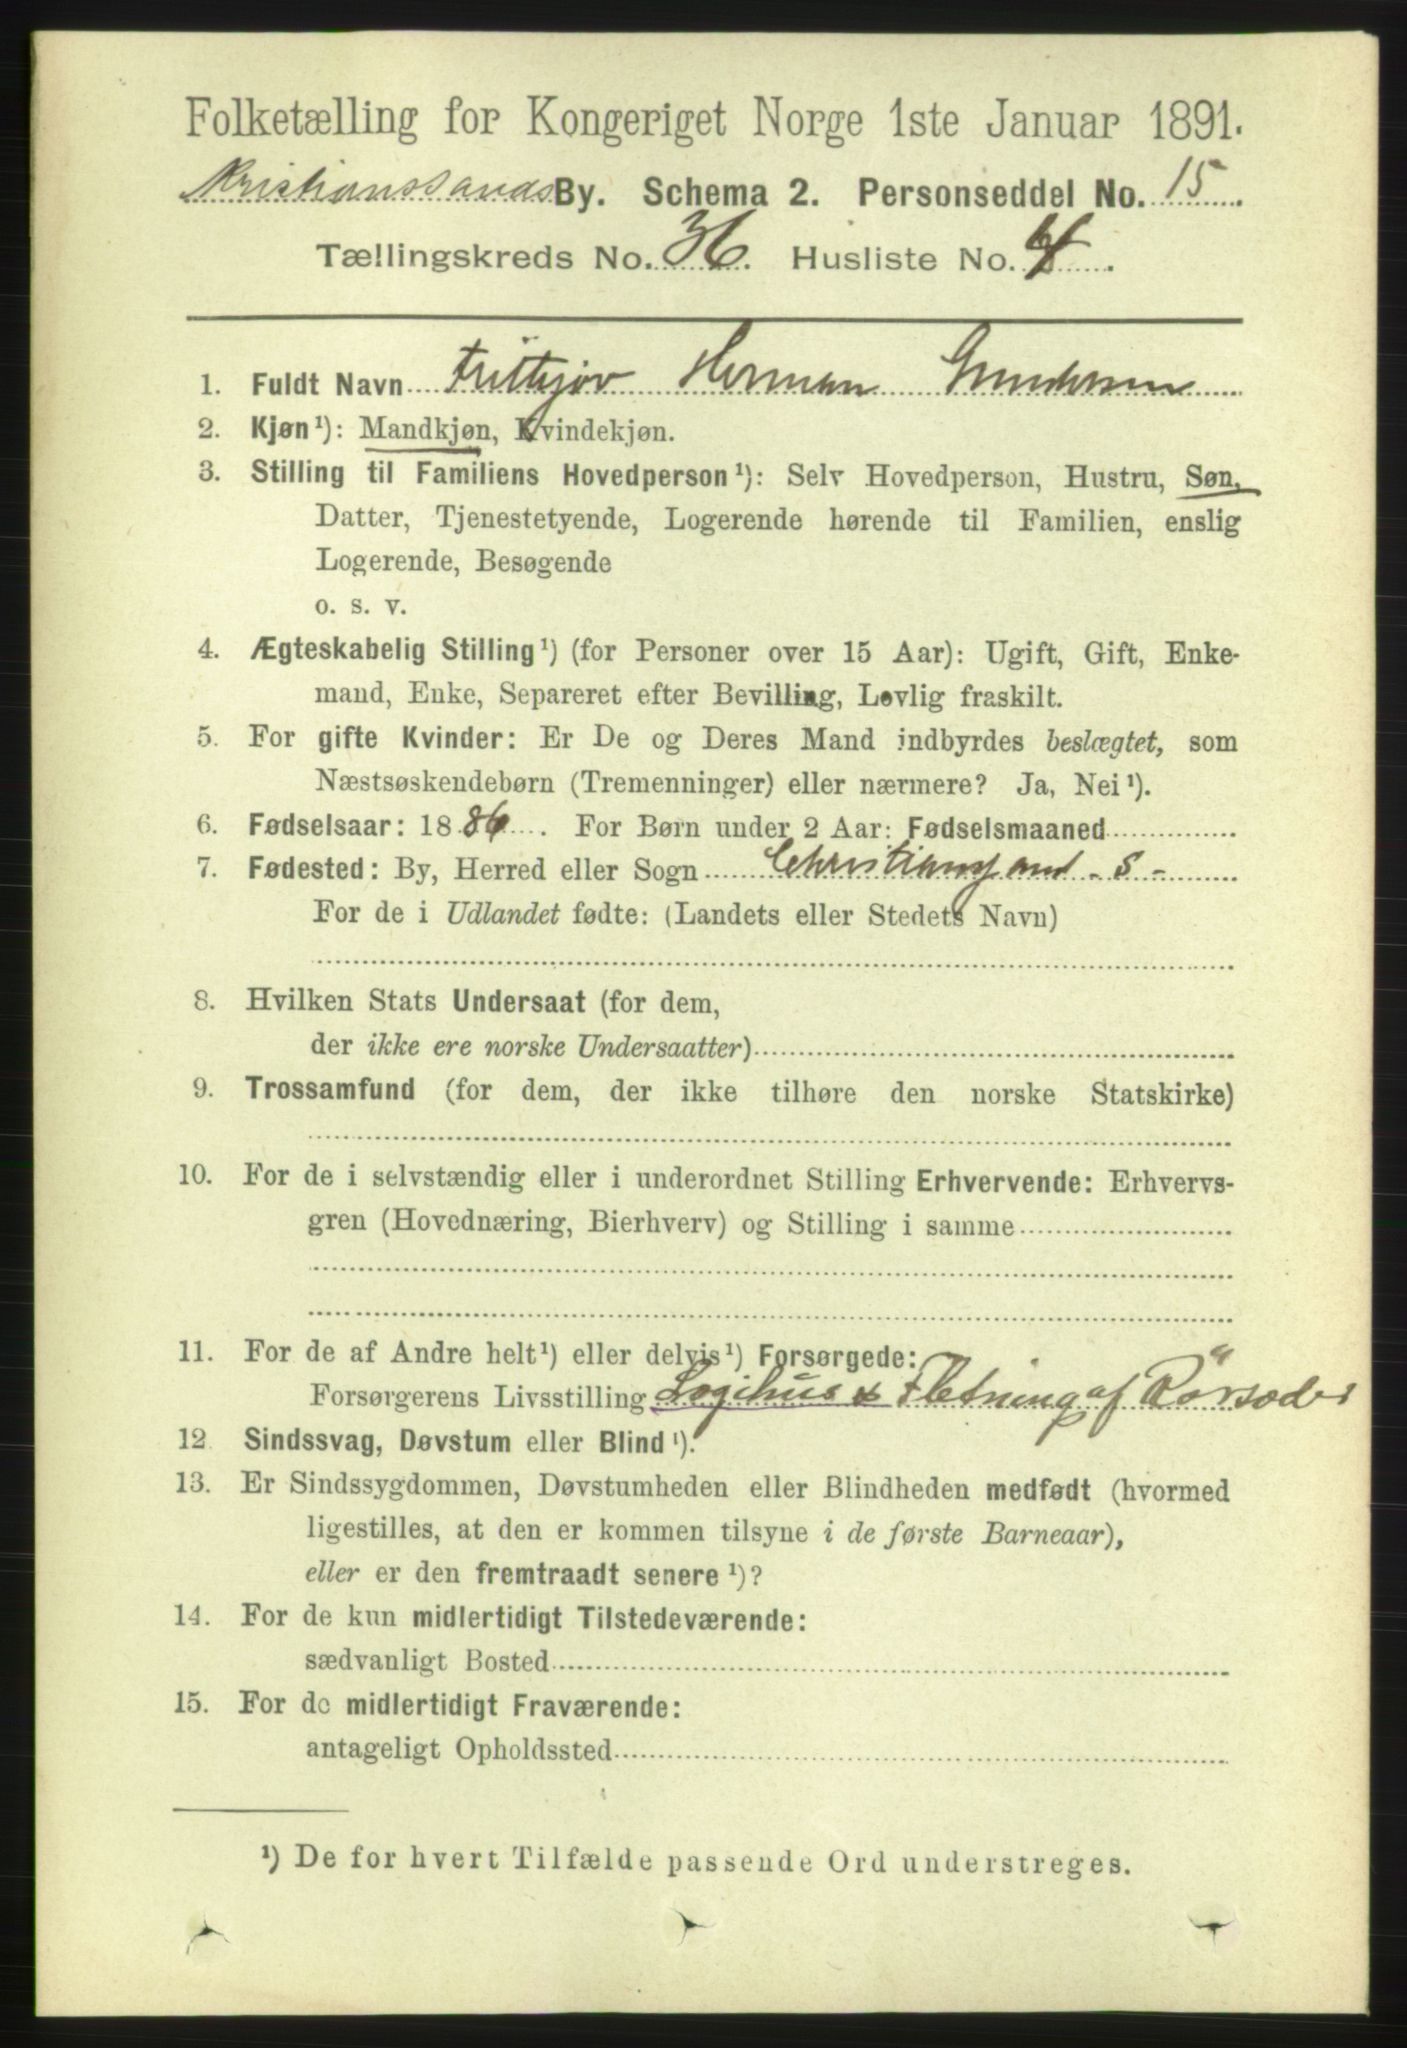 Folketælling for Kongeriget Norge 1ste Januar 1891.
Kristianssands By. Schema 2. Personseddel No. 15.
Tællingskreds No. 36. Husliste No. 4.
1. Fuldt Navn Frithjov Herman Gundersen
2. Kjøn¹): Mandkjøn, Kvindekjøn.
3. Stilling til Familiens Hovedperson¹): Selv Hovedperson, Hustru, Søn,
Datter, Tjenestetyende, Logerende hørende til Familien, enslig
Logerende, Besøgende
o. s. v.
4. Ægteskabelig Stilling¹) (for Personer over 15 Aar): Ugift, Gift, Enke-
mand, Enke, Separeret efter Bevilling, Lovlig fraskilt.
5. For gifte Kvinder: Er De og Deres Mand indbyrdes beslægtet, som
Næstsøskendebørn (Tremenninger) eller nærmere? Ja, Nei¹).
6. Fødselsaar: 1886. For Børn under 2 Aar: Fødselsmaaned
7. Fødested: By, Herred eller Sogn Christiansand - S -
For de i Udlandet fødte: (Landets eller Stedets Navn)
8. Hvilken Stats Undersaat (for dem,
der ikke ere norske Undersaatter)
9. Trossamfund (for dem, der ikke tilhøre den norske Statskirke)
10. For de i selvstændig eller i underordnet Stilling Erhvervende: Erhvervs-
gren (Hovednæring, Bierhverv) og Stilling i samme
11. For de af Andre helt¹) eller delvis¹) Forsørgede:
Forsørgerens Livsstilling Logihus & Fletning af Rörsæder
12 Sindssvag, Døvstum eller Blind¹).
13. Er Sindssygdommen, Døvstumheden eller Blindheden medfødt (hvormed
ligestilles, at den er kommen tilsyne i de første Barneaar),
eller er den fremtraadt senere¹)?
14. For de kun midlertidigt Tilstedeværende:
sædvanligt Bosted
15. For de midlertidigt Fraværende:
antageligt Opholdssted
¹) De for hvert Tilfælde passende Ord understreges.